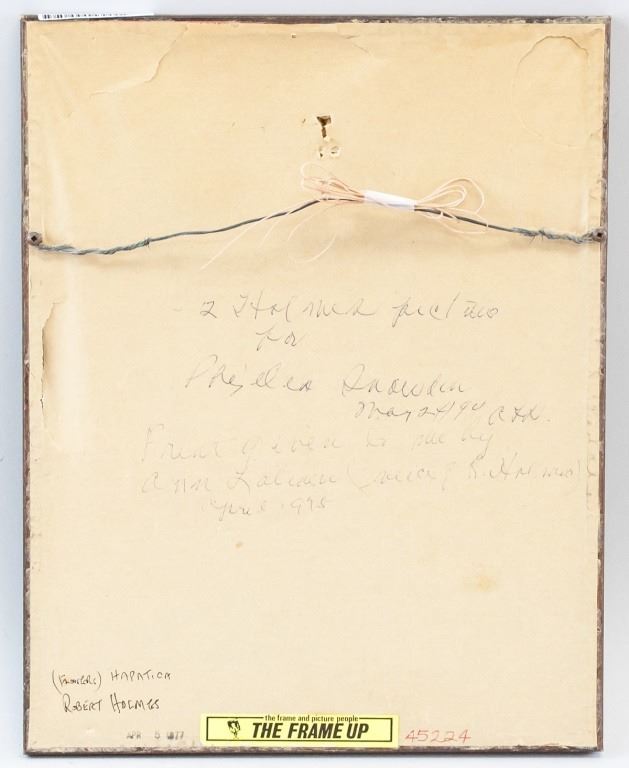 2 Holmes pictures
for
Priscilla Snowden
May 24/94
Print given to me by
Ann (niece of R. Holmes)
April 1995
(FLOWERS) HAPATICA
ROBERT HOLMES
APR 5 1977
the frame and picture people
THE FRAME UP
45224